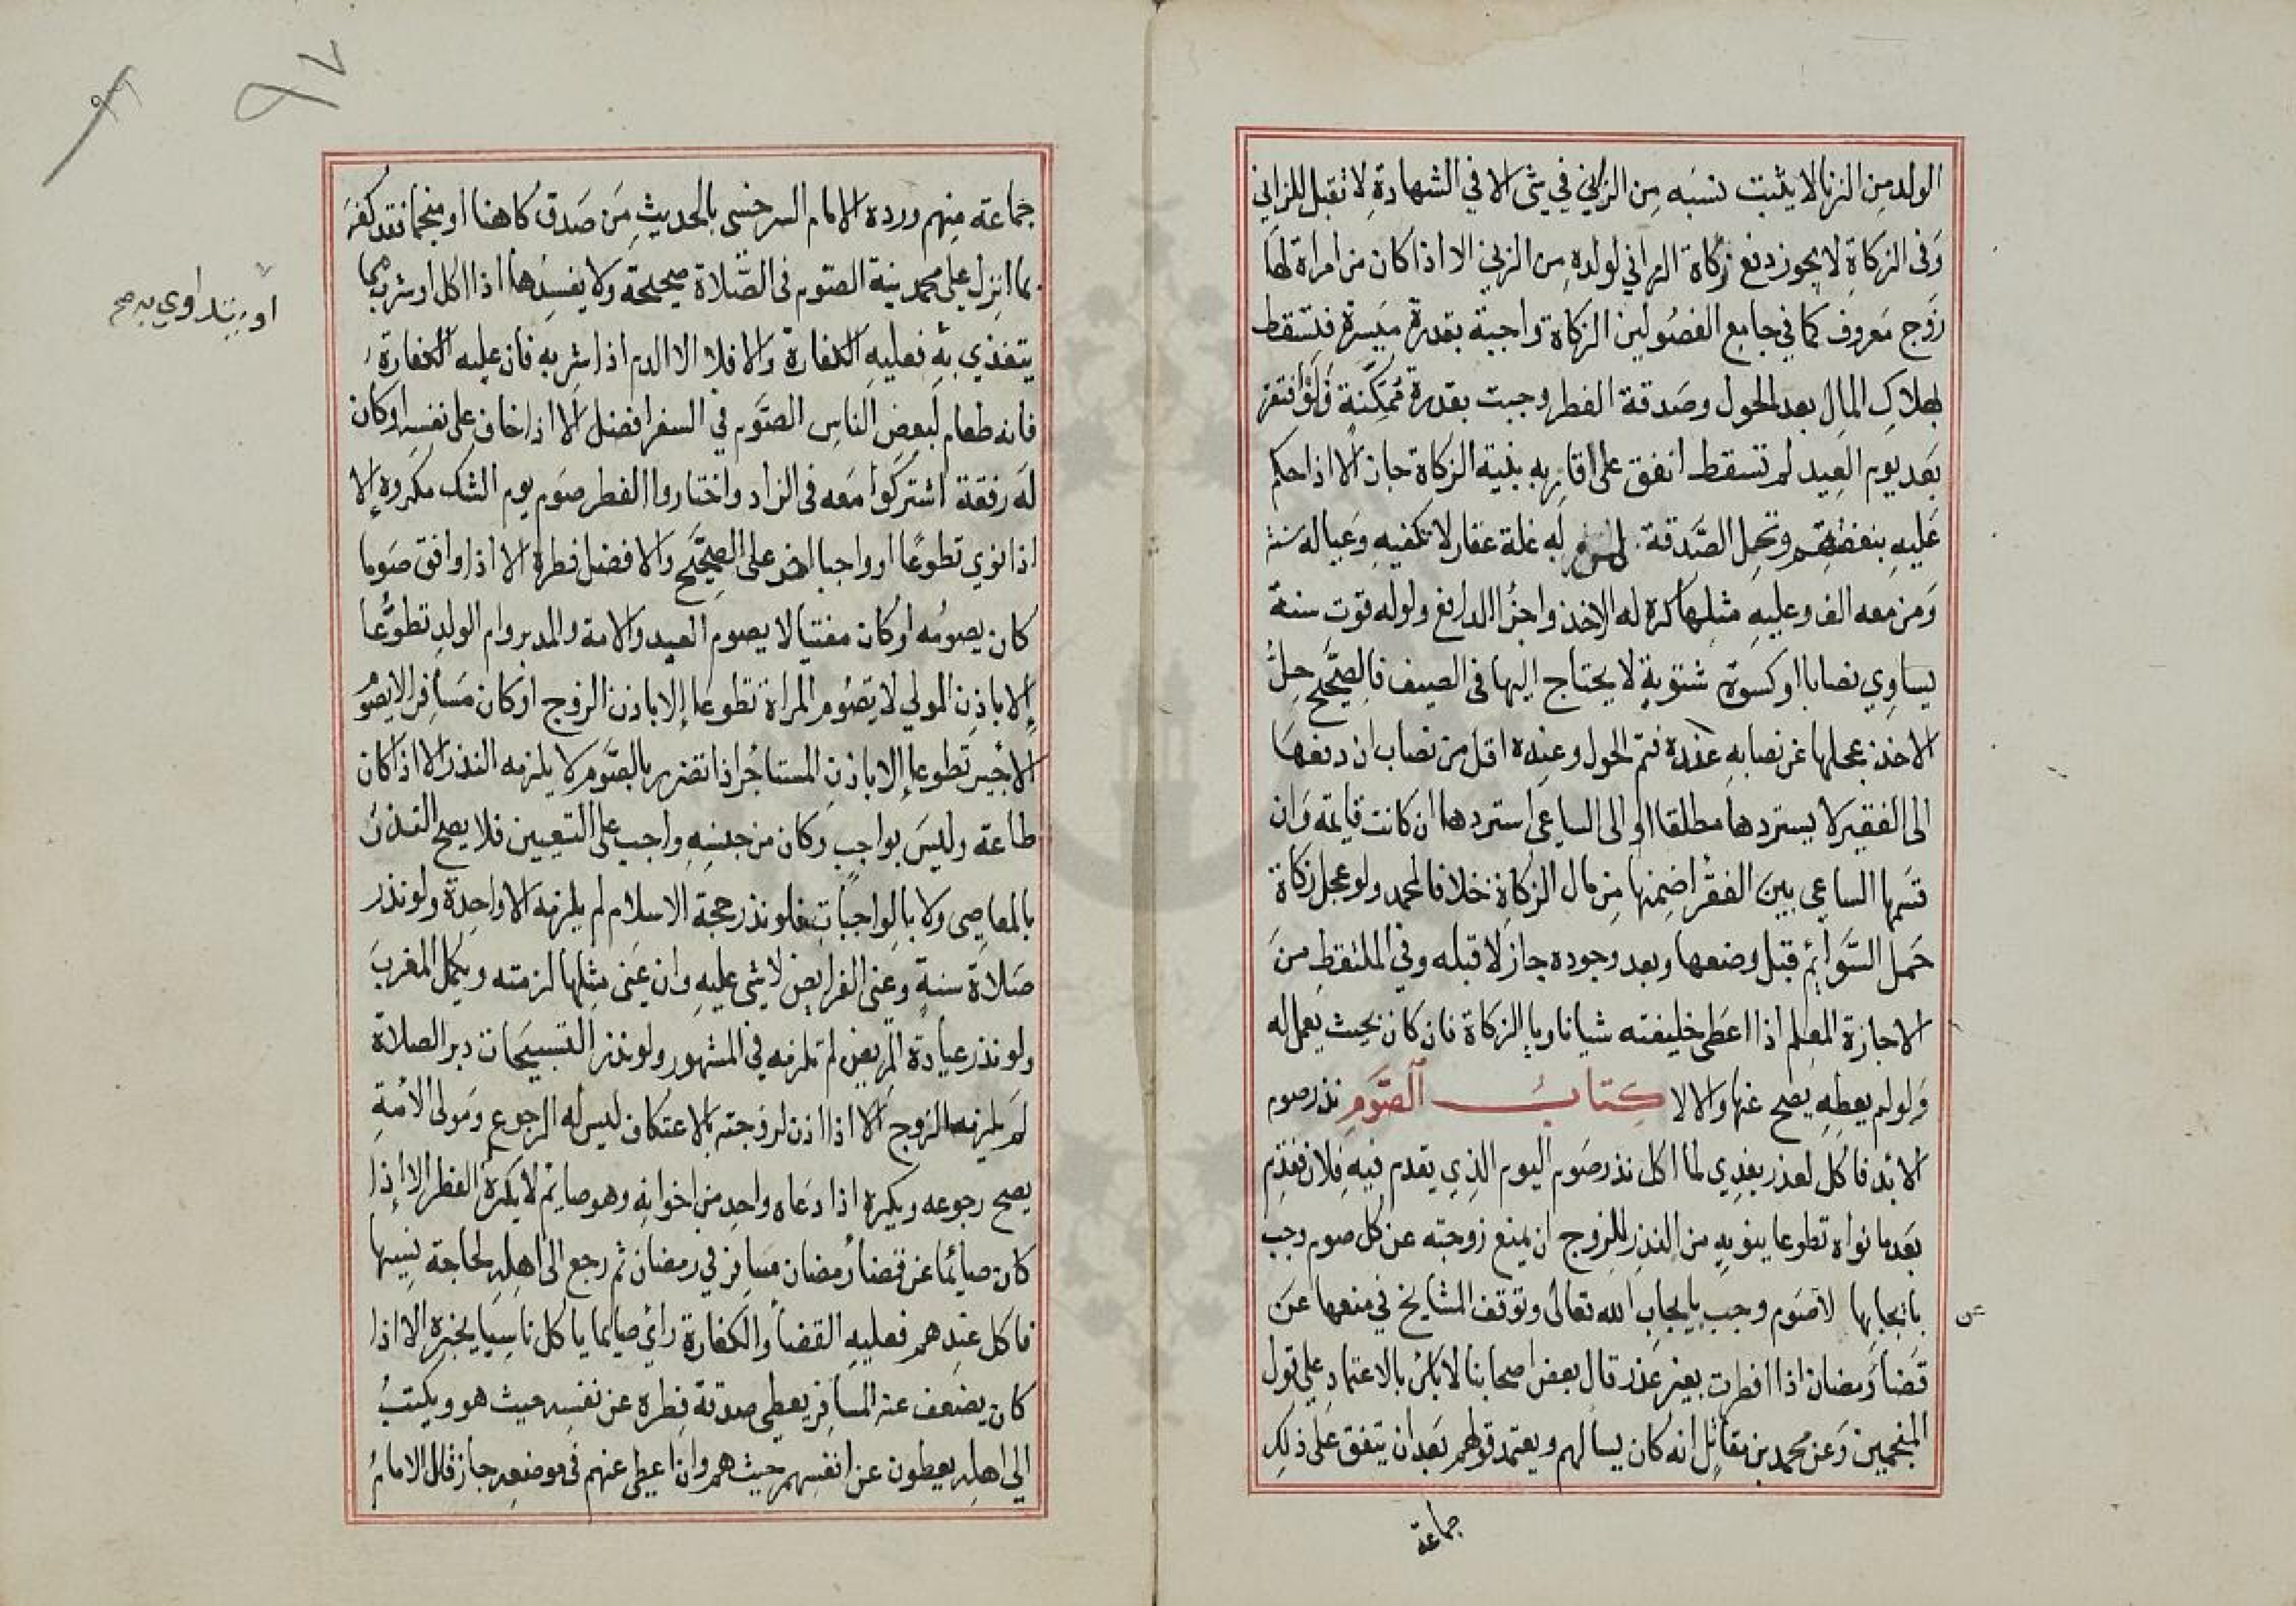 الولد من الزنا لا يثبت نسبه من الزاني في شئ الا في الشهادة لا تقبل للزاني
وفى الزكاة لا يجوز دفع زكاة الزاني لولده من الزنى الا اذا كان من امراة لها
زوج معروف كما في جامع الفصولين الزكاة واجبة بقدرة ميسرة فتسقط
بهلاك المال بعد الحول وصدقة الفطر وجبت بقدرة ممكنة ولو افتقر
بعد يوم العيد لم تسقط انفق على اقاربه بنية الزكاة جاز الا اذا حكم
عليه بنفقتهم وتحل الصدقة لمن له غلة عقار لا تكفيه وعياله سنة
ومن معه الف وعليه مثلها كره له الاخذ واجزا الدافع ولو له قوت سنة
يساوي نصابا او كسوة شتوية لا يحتاج اليها فى الصيف فالصحيح حل
الاخذ عجلها عن نصابه عنده فتم الحول وعنده اقل من نصاب ان دفعها
الى الفقير لا يستردها مطلقا او الى الساعى استردها ان كانت قايمة وان
قسمها الساعى بين الفقرا ضمنها من مال الزكاة خلافا لمحمد ولو عجل زكاة
حمل السوائم قبل وضعها وبعد وجوده جاز لا قبله وفي الملتقط من
الاجازة المعلم اذا اعطى خليفته شيا ناويا الزكاة فان كان بحيث يعمل له
ولو لم يعطه يصح عنها والا لا كتاب الصوم نذر صوم
الابد فاكل لعذر يفدي لما اكل نذر صوم اليوم الذي يقدم فيه فلان فقدم
بعد ما نواه تطوعا ينويه من النذر للزوج ان يمنع زوجته عن كل صوم وجب
بايجابها لا صوم وجب بايجاب الله تعالى وتوقف المشايخ في منعها عن
عن
قضا رمضان اذا افطرت بغير عذر قال بعض اصحابنا لا باس بالاعتماد علي قول
المنجمين وعن محمد بن مقاتل انه كان يسالهم ويعتمد قولهم بعد ان يتفق على ذلك
جماعة
٩٧
جماعة منهم ورده الامام السرخسى بالحديث من صدق كاهنا او منجما فقد كفر
بما انزل على محمد نية الصوم فى الصلاة صحيحة ولا يفسدها اذا اكل او شرب مما
او يتداوي به صح
يتغذي به فعليه الكفارة والا فلا الا الدم اذا شربه فان عليه الكفارة
فانه طعام لبعض الناس الصوم في السفر افضل الا اذا خاف على نفسه او كان
له رفقة اشتركوا معه فى الزاد واختاروا الفطر صوم يوم الشك مكروه الا
اذا نوي تطوعا او واجبا اخر على الصحيح والافضل فطره الا اذا وافق صوما
كان يصومه او كان مفتيا لا يصوم العبد والامة والمدبر وام الولد تطوعا
الا باذن المولي لا تصوم المراة تطوعا الا باذن الزوج او كان مسافرا لا يصوم
الاجير تطوعا الا باذن المستاجر اذا تضرر بالصوم لا يلزمه النذر الا اذا كان
طاعة وليس بواجب وكان من جنسه واجب على التعيين فلا يصح النذر
بالمعاصى ولا بالواجبات فلو نذر حجة الاسلام لم يلزمه الا واحدة ولو نذر
صلاة سنة وعنى الفرايض لا شى عليه وان عنى مثلها لزمته ويكمل المغرب
ولو نذر عيادة المريض لم تلزمه في المشهور ولو نذر التسبيحات دبر الصلاة
لم يلزمه الزوج الا اذا اذن لزوجته بالاعتكاف ليس له الرجوع ومولى الامة
يصح رجوعه ويكره اذا دعاه واحد من اخوانه وهو صايم لا يكره الفطر الا اذا
كان صائما عن قضا رمضان مسافر في رمضان ثم رجع الى اهله لحاجة نسيها
فاكل عندهم فعليه القضا والكفارة راي صايما ياكل ناسيا يخبره الا اذا
كان يضعف عنه المسافر يعطى صدقة فطره عن نفسه حيث هو ويكتب
الي اهله يعطون عن انفسهم حيث هم وان اعطى عنهم فى موضعه جاز قال الامام